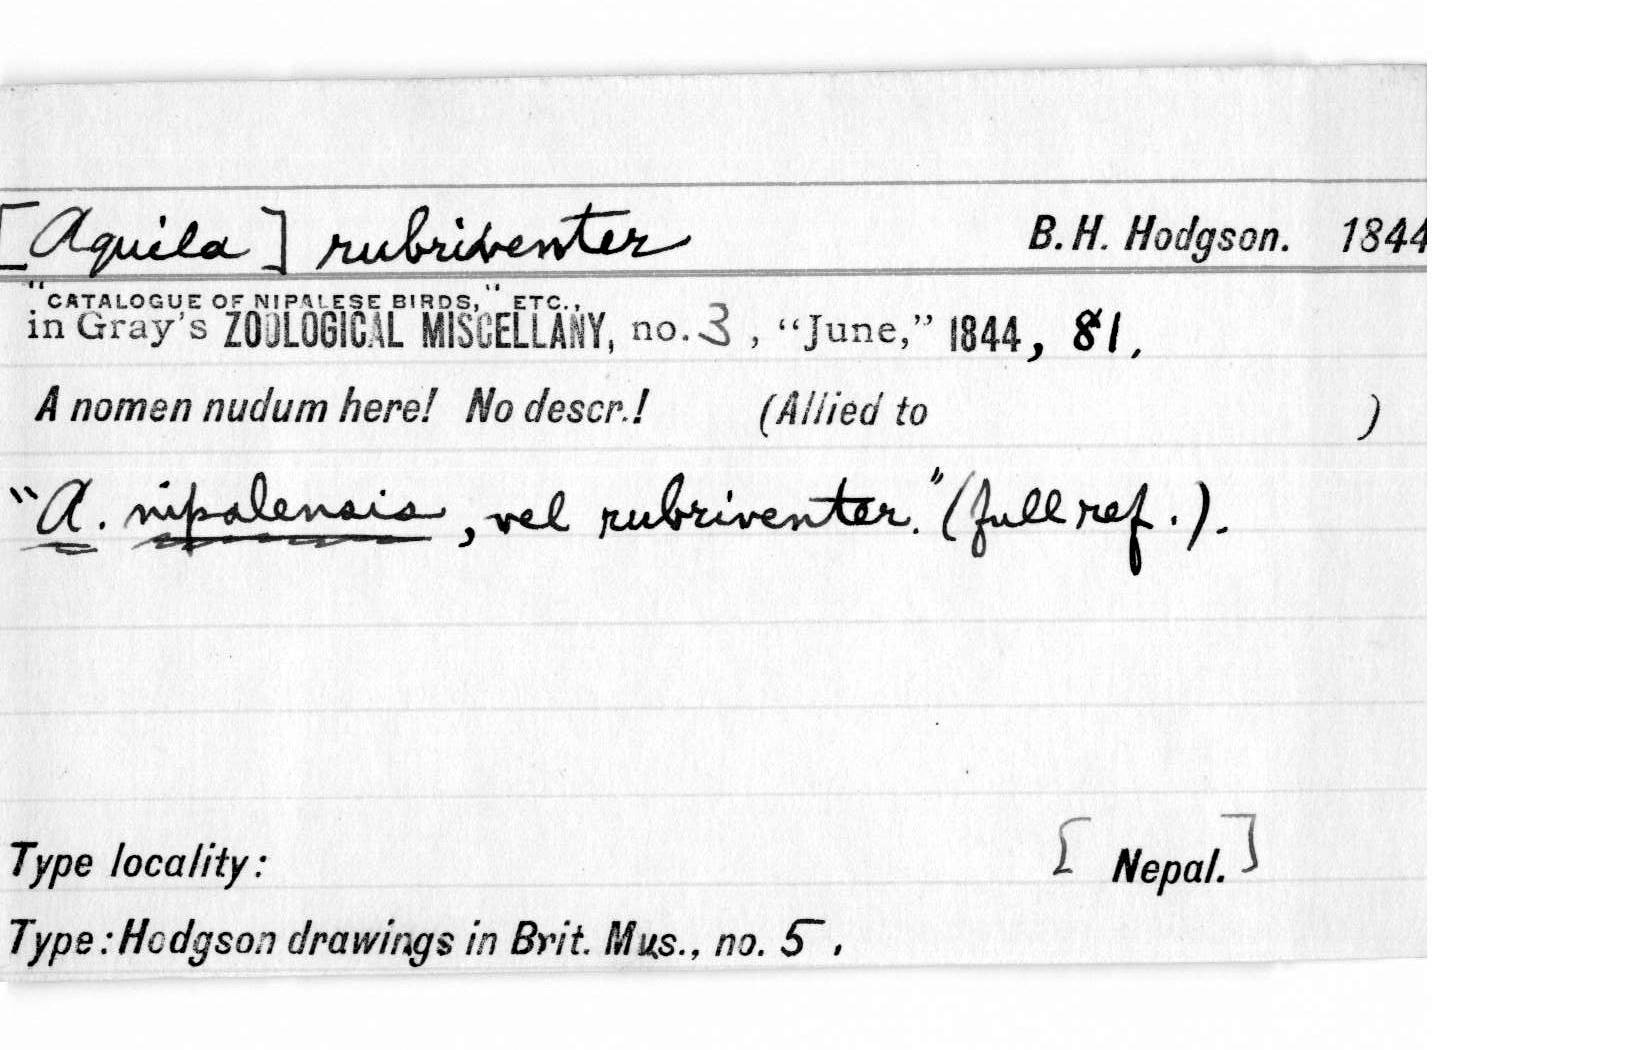 [Aquila] rubriventer B. H. Hodgson. 1844
"CATALOGUE OF NIPALESE BIRDS," ETC.,
in Gray's ZOOLOGICAL MISCELLANY, no. 3, "June," 1844, 81.
A nomen nudum here! No descr.! (Allied to )
"A. nipalensis, vel rubriventer." (full ref.).
Type locality: [Nepal.]
Type: Hodgson drawings in Brit. Mus., no. 5.